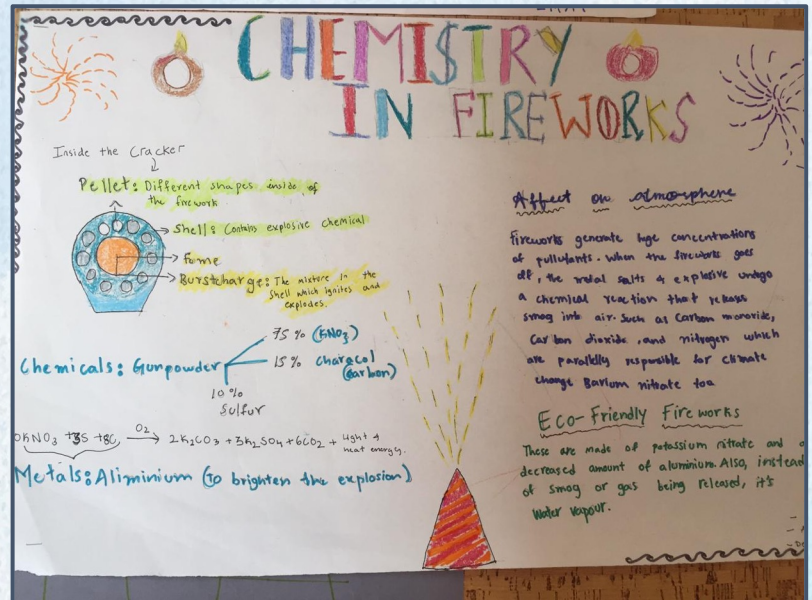 CHEMISTRY
IN FIREWORKS
Inside the Cracker
Pellet: Different shapes inside of
the firework
Shell: Contains explosive chemical
Fome
Burstcharge: The mixture in the
shell which ignites and
explodes.
Chemicals: Gunpowder
75 % (KNO3)
15 % charecol
(carbon)
10 %
Sulfur
0KNO3 +3S +8C O2 → 2K2CO3 + 3K2SO4 + 6CO2 + light &
heat energy.
Metals: Aliminium (to brighten the explosion)
Affect on atmosphere
Fireworks generate huge concentrations
of pullutants. When the fireworks goes
off, the metal salts & explosive undgo
a chemical reaction that releases
smog into air. Such as Carbon monoxide,
Carbon dioxide, and nitrogen which
are parallelly responsible for climate
change Barium nitrate too
Eco-Friendly Fireworks
These are made of potassium nitrate and a
decreased amount of aluminium. Also, instead
of smog or gas being released, it's
Water vapour.